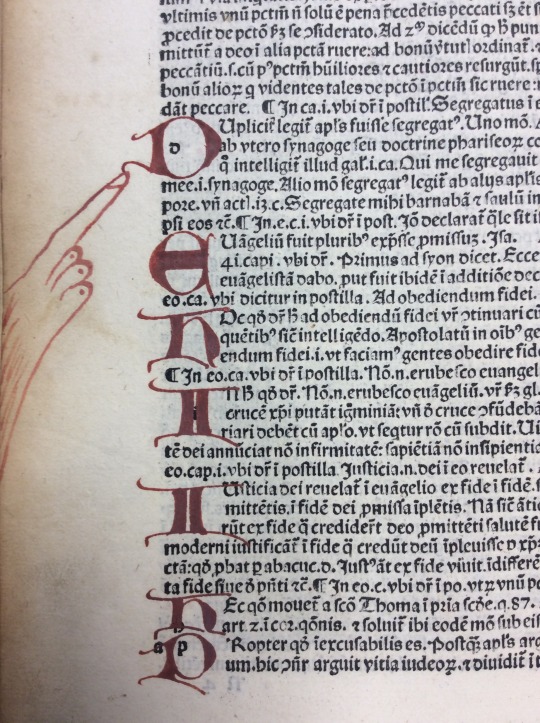 vltimis vnū pctm̄ n̄ solū ē pena p̄cedētis peccati sȝ ēt s
ꝓcedit de pctō ꝑ se ꝯsiderato. Ad 2ᵐ dicēdū ꝙ h̄ pun
mittūt̄ a deo ī alia pctā ruere: ad bonū v̄tut̄ ordinat̄.
peccātiū.s.cū pᵖ pctm̄ hūiliores ⁊ cautiores resurgūt.
bonū alioꝝ q videntes tales de pctō ī pctm̄ sic ruere:
dāt peccare. ¶ In ca.i. vbi dr̄ ī postil̄. Segregatus ī
d Uplicit̄ legit̄ apl̄s fuisse segregatꝰ. Uno mō.
ab vtero synagoge seu doctrine phariseoꝝ
q̄ intelligit̄ illud gal̄.i.ca. Qui me segregauit
mee.i.synagoge. Alio mō segregatꝰ legit̄ ab alijs apl̄is
pore. vn̄ act̄.13.c. Segregate mihi barnabā ⁊ saulū in
psi eos ⁊c̄. ¶ In.e.c.i. vbi dr̄ ī post. Iō declarat̄ q̄le sit
E Uāgeliū fuit pluribꝰ exp̄sse ꝓmissuȝ. Isa.
4i.capi. vbi dr̄. Primus ad syon dicet. Ecce
euāgelistā dabo. put fuit ibidē ī additiōe
eo.ca. vbi dicitur in postilla. Ad obediendum fidei.
H Oc qd̄ dr̄ h̄ ad obediendū fidei vr̄ ꝯtinuari
quētibꝰ sic̄ intelligēdo. Apostolatū in oībꝰ
endum fidei.i. vt faciamꝰ gentes obedire
¶ In eo.ca. vbi dr̄ ī postilla. Nō.n. erubesco
I N h̄ qd̄ dr̄. Nō.n.erubesco euāgeliū. vr̄ ꝑȝ
crucē xp̄i putāt igm̄iniā: vn̄ d̄ cruce
riari debēt cū apl̄o. vt seqtur rō cū subdit.
tē dei annūciat nō infirmitatē: sapiētiā nō insipientiā
eo.cap.i. vbi dr̄ ī postilla. Iusticia.n. dei ī eo reuelat̄.
I Usticia dei reuelat̄ ī euāgelio ex fide ī fidē.
mittētis.ī fidē dei ꝓmissa īplētis. Nā sic̄
rūt ex fide q̄ credider̄t deo ꝓmittēti salutē
moderni iustificāt̄ ī fide q̄ credūt deū īpleuisse
ctā: qd̄ ꝓbat ꝑ abacuc.d. Iustꝰ āt ex fide viuit.
ta fide siue d̄ pn̄ti ⁊c̄. ¶ In eo.c. vbi dr̄ ī po.
H Ec qō mouet̄ a scō Thoma ī pria scd̄e.q.87.
art.2.ī cor.qōnis. ⁊ soluit̄ ibi eodē mō sub
a p P Ropter qd̄ īexcusabilis es. Postq̄ apl̄s
um.hic ꝯn̄r arguit vitia iudeoꝝ.⁊ diuidit̄